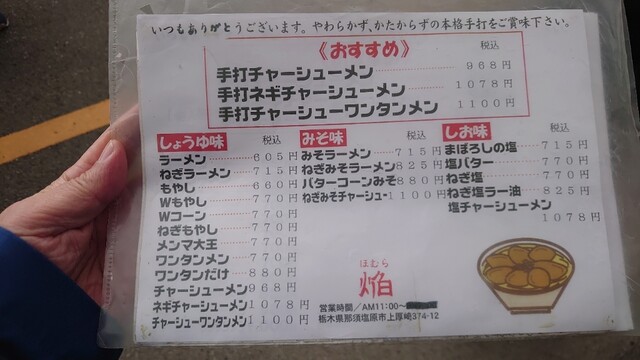 いつもありがとうございます。やわらかず、かたからずの本格手打をご賞味下さい。
《おすすめ》 税込
手打チャーシューメン 968円
手打ネギチャーシューメン 1078円
手打チャーシューワンタンメン 1100円
しょうゆ味 税込
ラーメン 605円
ねぎラーメン 715円
もやし 660円
Wもやし 770円
Wコーン 770円
ねぎもやし 770円
メンマ大王 770円
ワンタンメン 770円
ワンタンだけ 880円
チャーシューメン 968円
ネギチャーシューメン 1078円
チャーシューワンタンメン 1100円
みそ味 税込
みそラーメン 715円
ねぎみそラーメン 825円
バターコーンみそ 880円
ねぎみそチャーシュー 1100円
しお味 税込
まぼろしの塩 715円
塩バター 770円
ねぎ塩 770円
ねぎ塩ラー油 825円
塩チャーシューメン
1078円
ほむら
焔
営業時間/AM11:00〜
栃木県那須塩原市上厚崎374-12